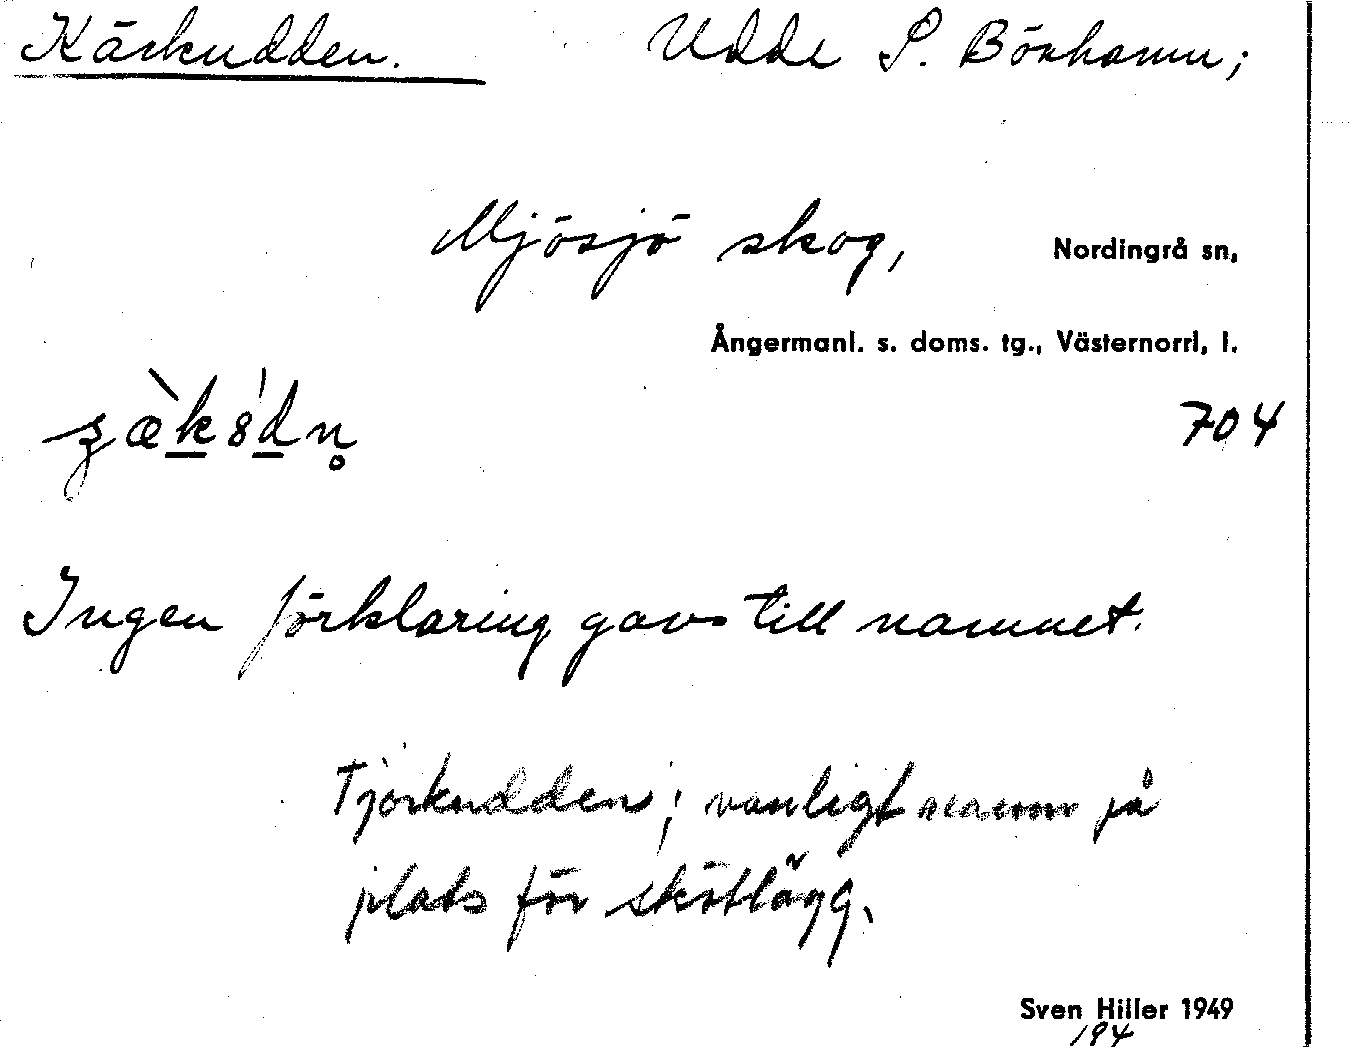 Kärkudden. Udde S. Bönhamn;
Mjösjö skog, Nordingrå sn,
Ångermanl. s. doms. tg., Västernorrl, l.
704
Ingen förklaring gavs till namnet.
Tjärkudden; vanligt namn på
plats för skötlägg.
Sven Hiller 1949
194